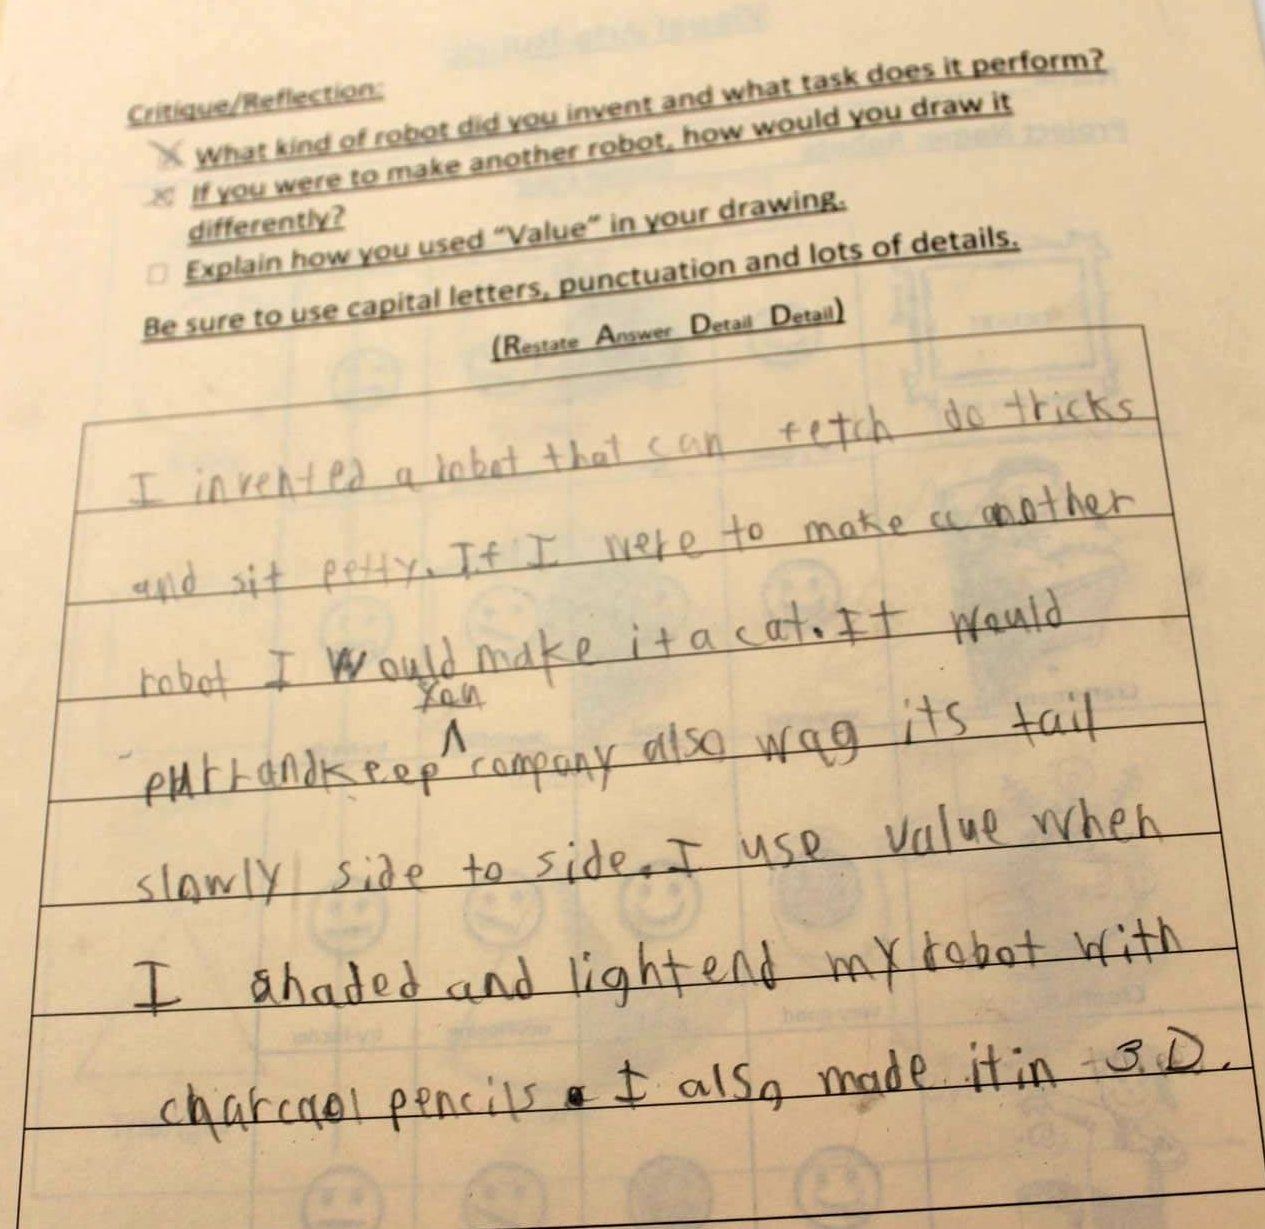 Critique/Reflection:
What kind of robot did you invent and what task does it perform?
If you were to make another robot, how would you draw it
differently?
Explain how you used "Value" in your drawing.
Be sure to use capital letters, punctuation and lots of details.
(Restate Answer Detail Detail)
I invented a robot that can fetch do tricks
and sit petty. If I were to make a another
robot I would make it a cat. It would
you
purr and keep ^ company also wag its tail
slowly side to side. I use value when
I shaded and lightend my robot with
charcaol pencils. I also made it in 3.D.